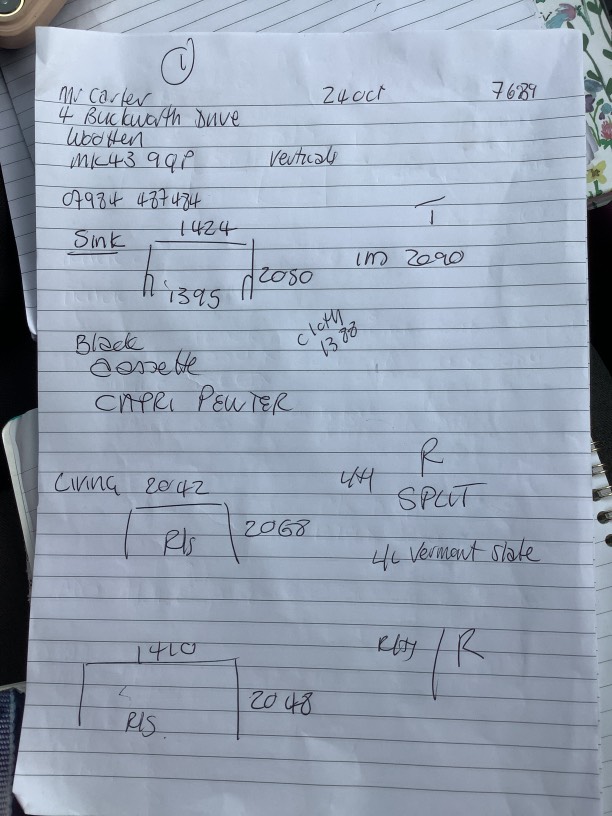 1
Mr Carter 24 oct 7689
4 Buckworth Drive
Wootten
MK43 9QP Verticals
07984 487484
Sink 1424
1395 2080 1m 2090
Cloth
1388
Black
Cassette
CAPRI PEWTER
Living 2042 R
SPLIT
R/s 2068
Vermont slate
1410 R
2048
R/S